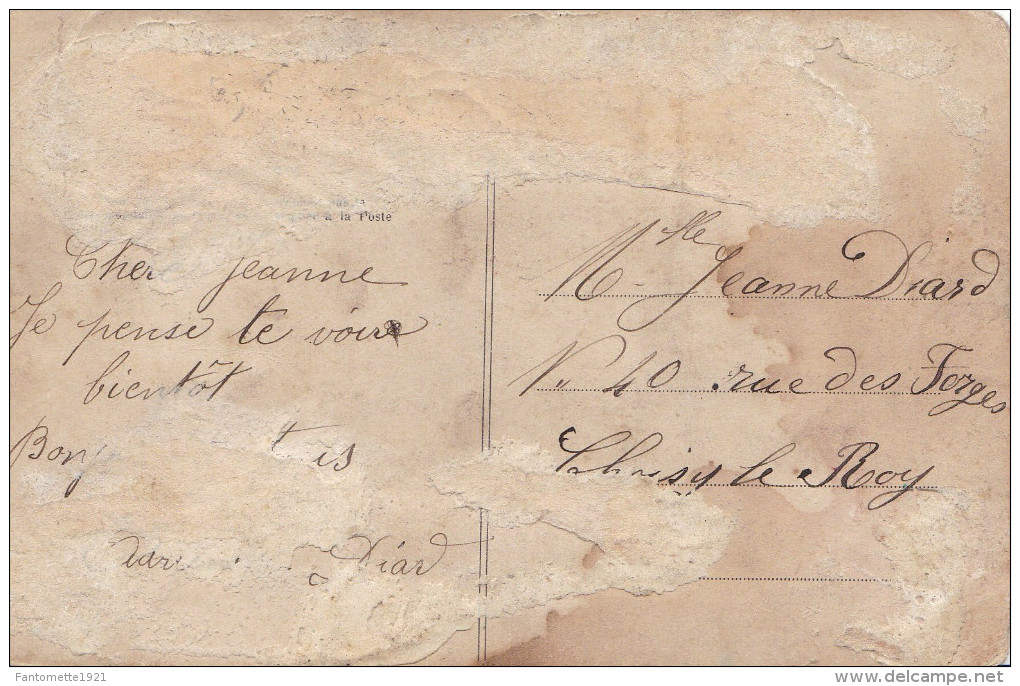 à la Poste
Cher Jeanne
Je pense te voire
bientôt
Bon
Diard
Mlle Jeanne Diard
N. 40 rue des Forges
Choisy le Roy
Fantomette1921
delcampe.net